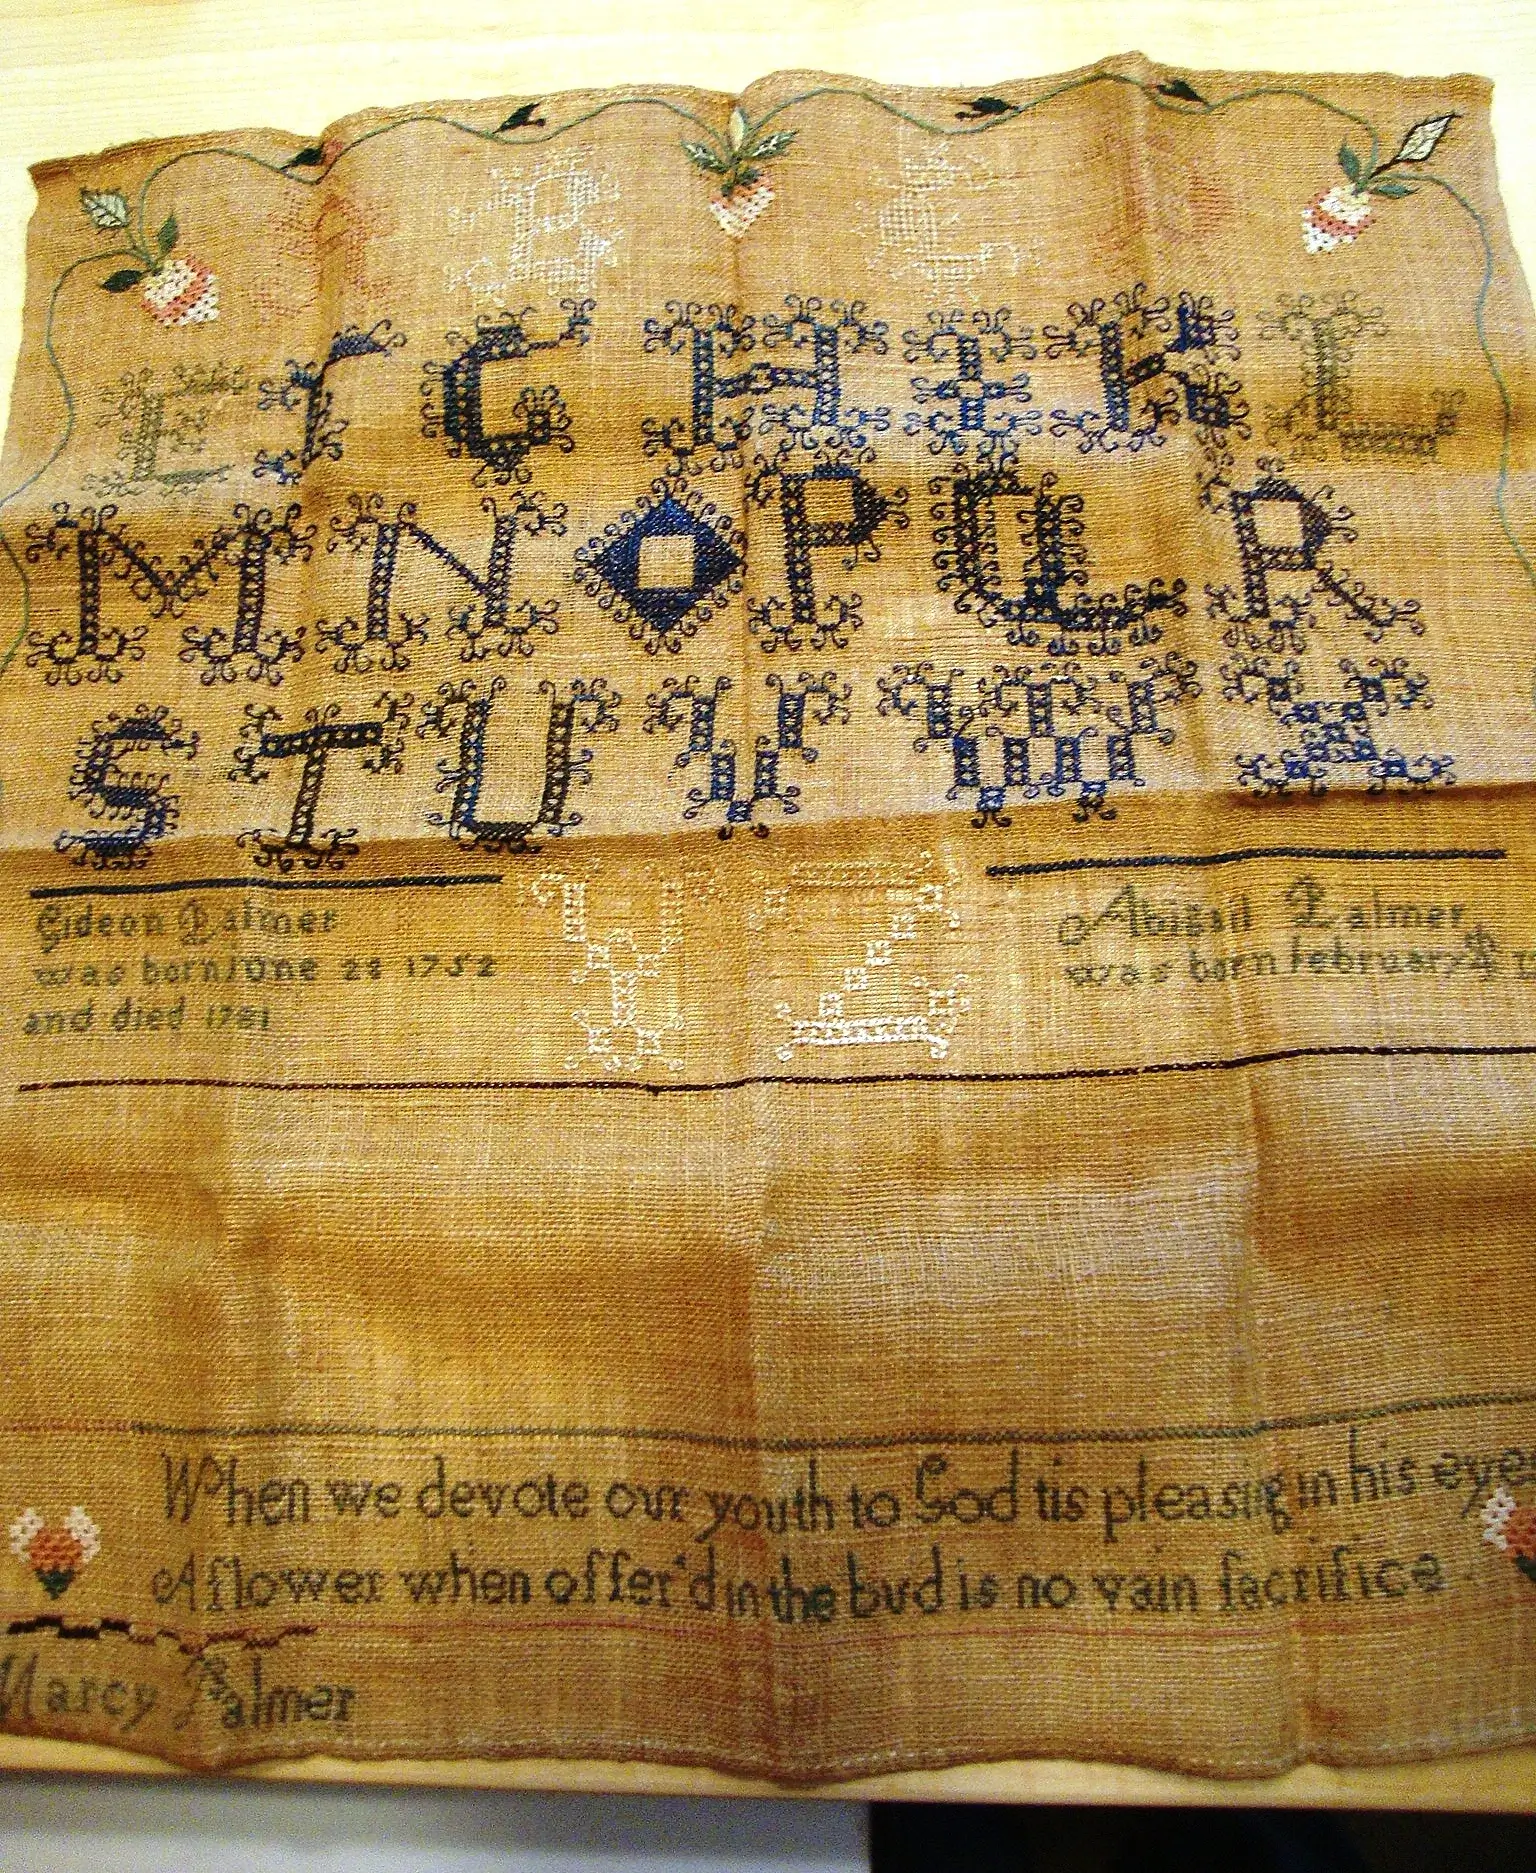 B C
E F G H I K L
M N O P Q R
S T U V W X
Y Z
Gideon Palmer
was born June 28 1752
and died 1781
Abigail Palmer
was born February
When we devote our youth to God tis pleasing in his eyes
A flower when offer'd in the bud is no vain sacrifice
Marcy Palmer